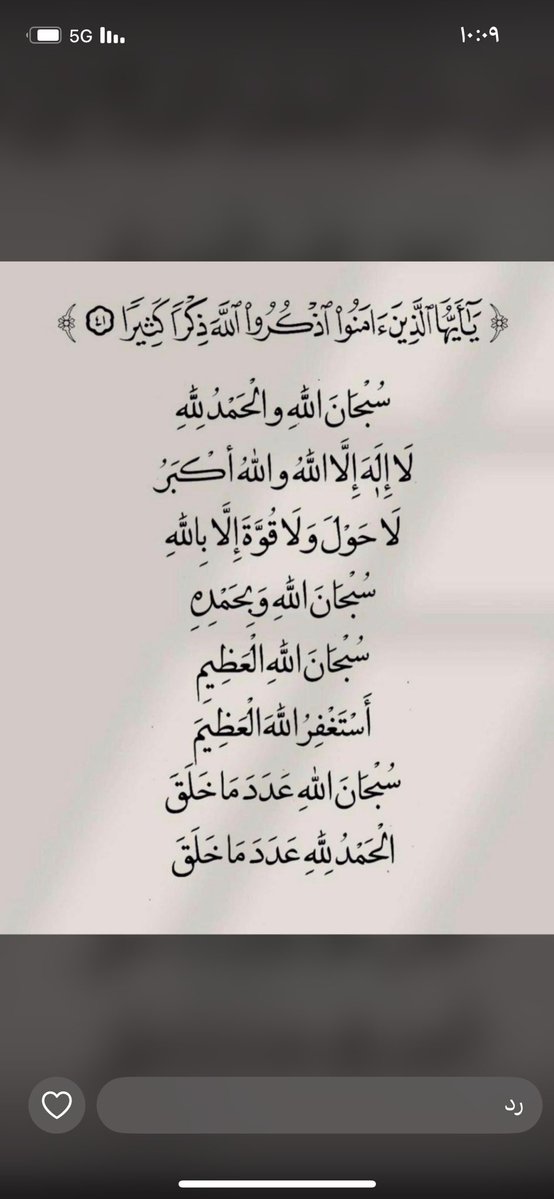 5G ١٠:٠٩
﴿ يَٰٓأَيُّهَا ٱلَّذِينَ ءَامَنُوا۟ ٱذْكُرُوا۟ ٱللَّهَ ذِكْرًا كَثِيرًا ٤١ ﴾
سُبْحَانَ اللّٰهِ والْحَمْدُ لِلّٰهِ
لَا إِلَهَ إِلَّا اللّٰهُ واللّٰهُ أَكْبَرُ
لَا حَوْلَ وَلَا قُوَّةَ إِلَّا بِاللّٰهِ
سُبْحَانَ اللّٰهِ وَبِحَمْدِهِ
سُبْحَانَ اللّٰهِ الْعَظِيمِ
أَسْتَغْفِرُ اللّٰهَ الْعَظِيمَ
سُبْحَانَ اللّٰهِ عَدَدَ مَا خَلَقَ
الْحَمْدُ لِلّٰهِ عَدَدَ مَا خَلَقَ
رد